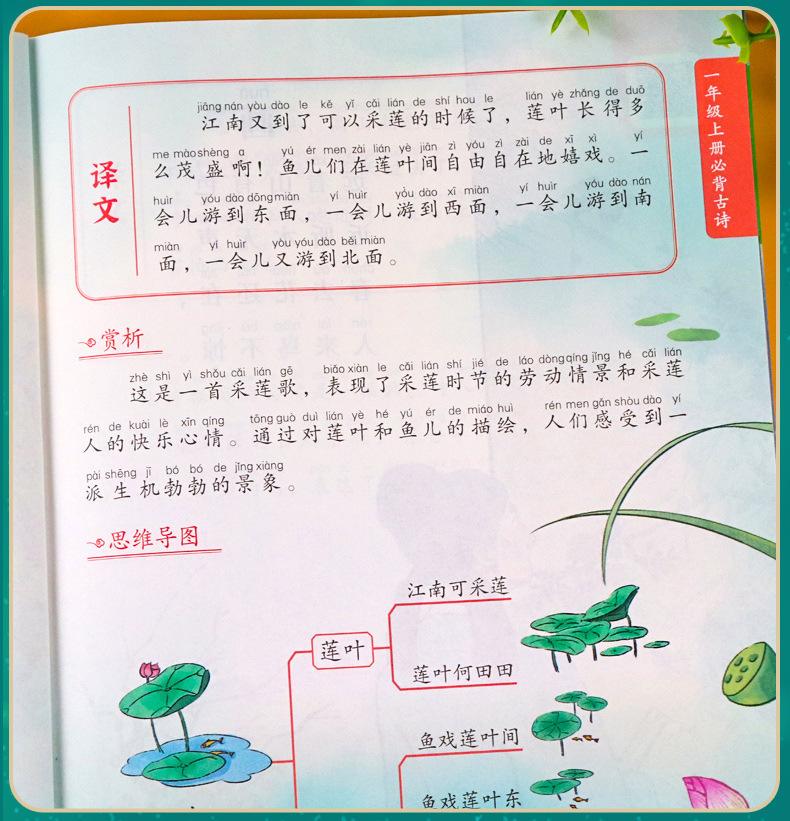 jiāng nán yòu dào le kě yǐ cǎi lián de shí hou le lián yè zhǎng de duō
江南又到了可以采莲的时候了，莲叶长得多
me mào shèng a yú ér men zài lián yè jiān zì yóu zì zài de xī xì yí
么茂盛啊！鱼儿们在莲叶间自由自在地嬉戏。一
huìr yóu dào dōng miàn yí huìr yóu dào xī miàn yí huìr yóu dào nán
会儿游到东面，一会儿游到西面，一会儿游到南
miàn yí huìr yòu yóu dào běi miàn
面，一会儿又游到北面。
译文
一年级上册必背古诗
赏析
zhè shì yì shǒu cǎi lián gē biǎo xiàn le cǎi lián shí jié de láo dòng qíng jǐng hé cǎi lián
这是一首采莲歌，表现了采莲时节的劳动情景和采莲
rén de kuài lè xīn qíng tōng guò duì lián yè hé yú ér de miáo huì rén men gǎn shòu dào yí
人的快乐心情。通过对莲叶和鱼儿的描绘，人们感受到一
pài shēng jī bó bó de jǐng xiàng
派生机勃勃的景象。
思维导图
江南可采莲
莲叶
莲叶何田田
鱼戏莲叶间
鱼戏莲叶东